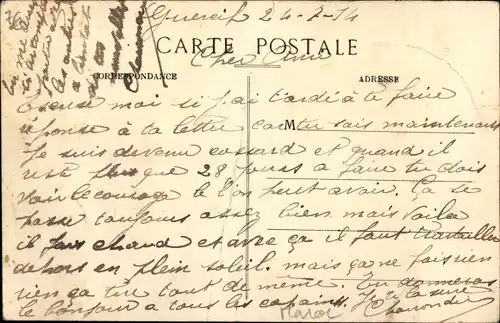 Guercif 24-7-14
CARTE POSTALE
Cher Ami
CORRESPONDANCE
ADRESSE
Excuse moi si j'ai tardé à te faire
réponse à ta lettre car tu sais maintenant
M
je suis devenu cossard et quand il
reste plus que 28 jours a faire tu dois
voir le courage que l'on peut avoir. Ça se
passe toujours assez bien mais voila
il fais chaud et avec ça il faut travailler
dehors en plein soleil. mais ça ne fais rien
rien ça tire tout de meme. Tu donneras
le bonjour a tous les copains.
Maroc